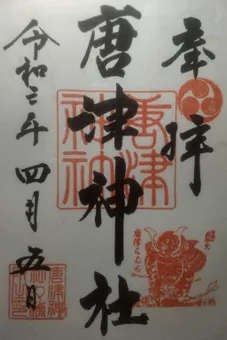 奉拝
唐津神社
令和三年四月五日
唐津神社
唐津くんち